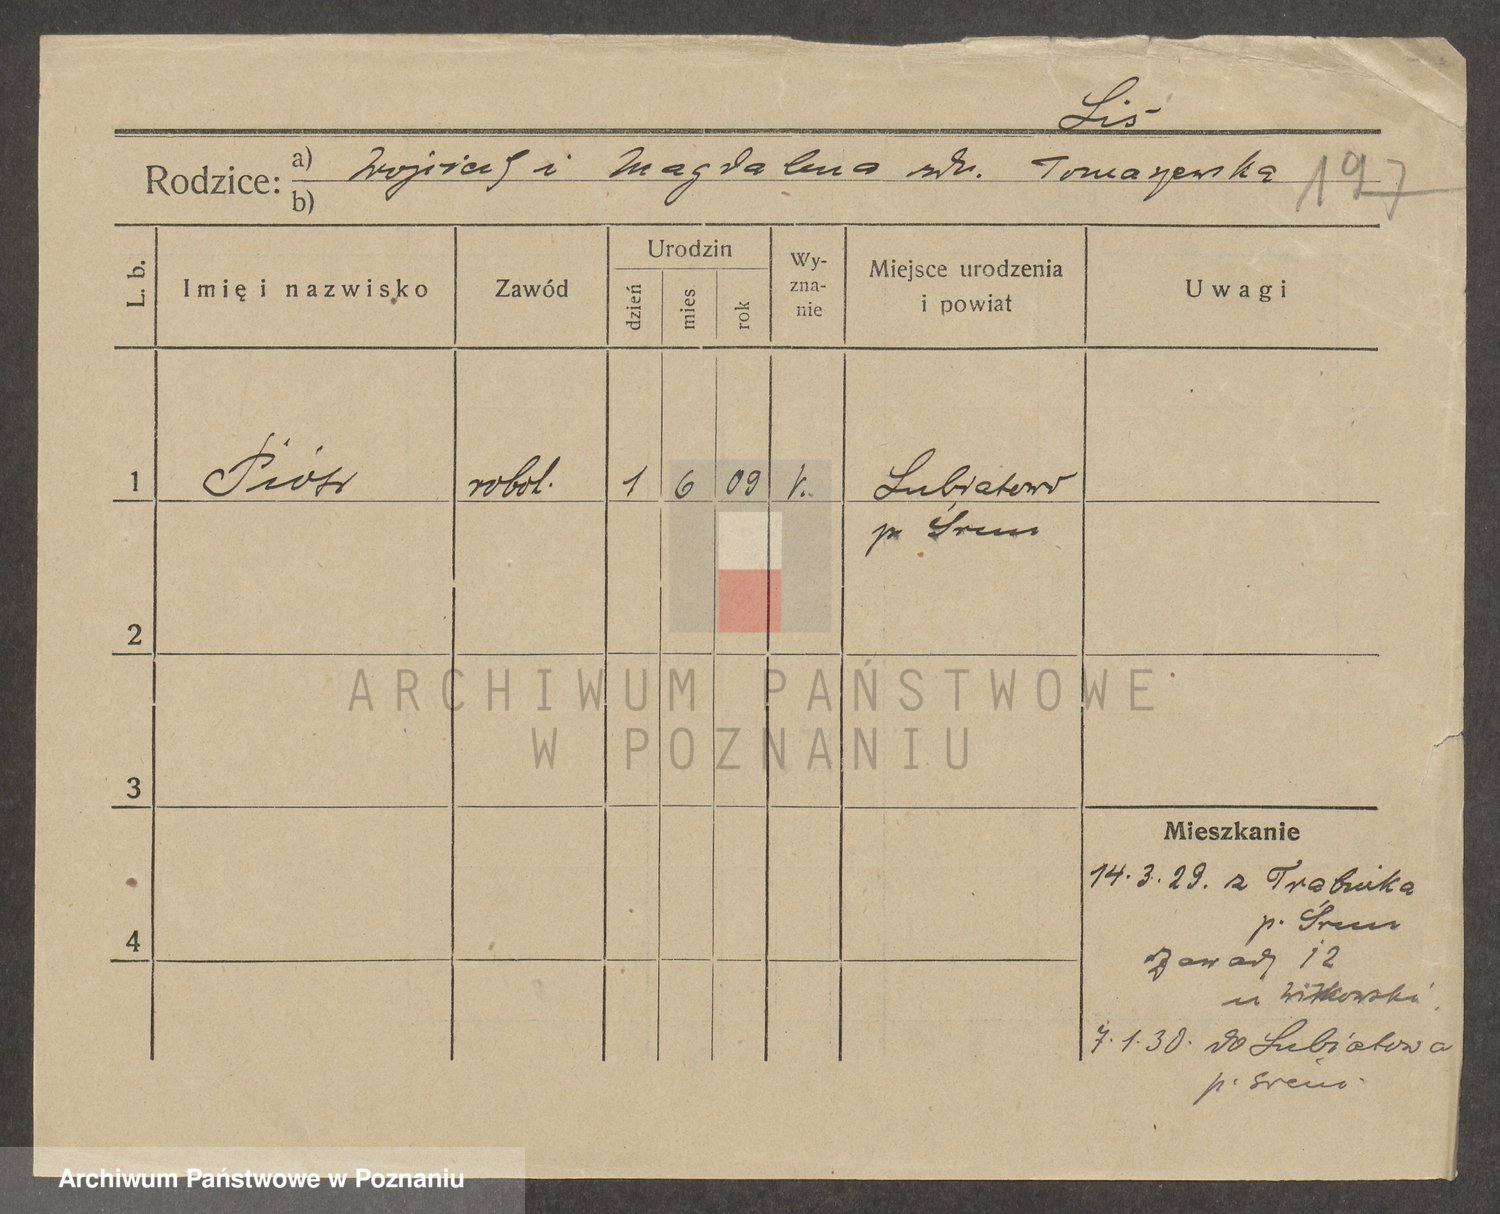 Liś
Rodzice: a) Wojciech i Magdalena Tomaszewska 197
b)
L. b. Imię i nazwisko Zawód Urodzin dzień mies rok Wy-zna-nie Miejsce urodzenia i powiat Uwagi
1 Piotr robot. 1 6 09 k. Lubiatowo
p Śrem
2
ARCHIWUM PAŃSTWOWE
W POZNANIU
3
Mieszkanie
14.3.29. z Trąbinka
p. Śrem
4
Zawady 12
u Witkowski
7.1.30. do Lubiatowa
p. Śrem.
Archiwum Państwowe w Poznaniu